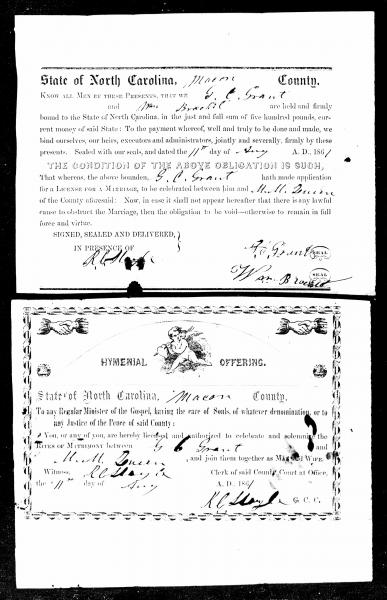 State of North Carolina, Macon County.
Know all Men by these Presents, that we G. C. Grant
and Wm Brackit are held and firmly
bound to the State of North Carolina, in the just and full sum of five hundred pounds, cur-
rent money of said State: To the payment whereof, well and truly to be done and made, we
bind ourselves, our heirs, executors and administrators, jointly and severally, firmly by these
presents. Sealed with our seals, and dated the 11th day of A. D. 1861
THE CONDITION OF THE ABOVE OBLIGATION IS SUCH,
That whereas, the above bounden, G. C. Grant hath made application
for a License for a Marriage, to be celebrated between him and M. M.
of the County aforesaid: Now, in case it shall not appear hereafter that there is any lawful
cause to obstruct the Marriage, then the obligation to be void—otherwise to remain in full
force and virtue.
SIGNED, SEALED AND DELIVERED,
IN PRESENCE OF
G. C. Grant SEAL
Wm SEAL
HYMENIAL OFFERING.
State of North Carolina, Macon County.
To any Regular Minister of the Gospel, having the care of Souls, of whatever denomination, or to
any Justice of the Peace of said County:
You, or any of you, are hereby licensed and authorized to celebrate and solemnize the
Rites of Matrimony between G C Grant and
M. M. , and join them together as Man and Wife.
Witness, Clerk of said County Court at Office,
the 11th day of A. D. 1861
C. C. C.